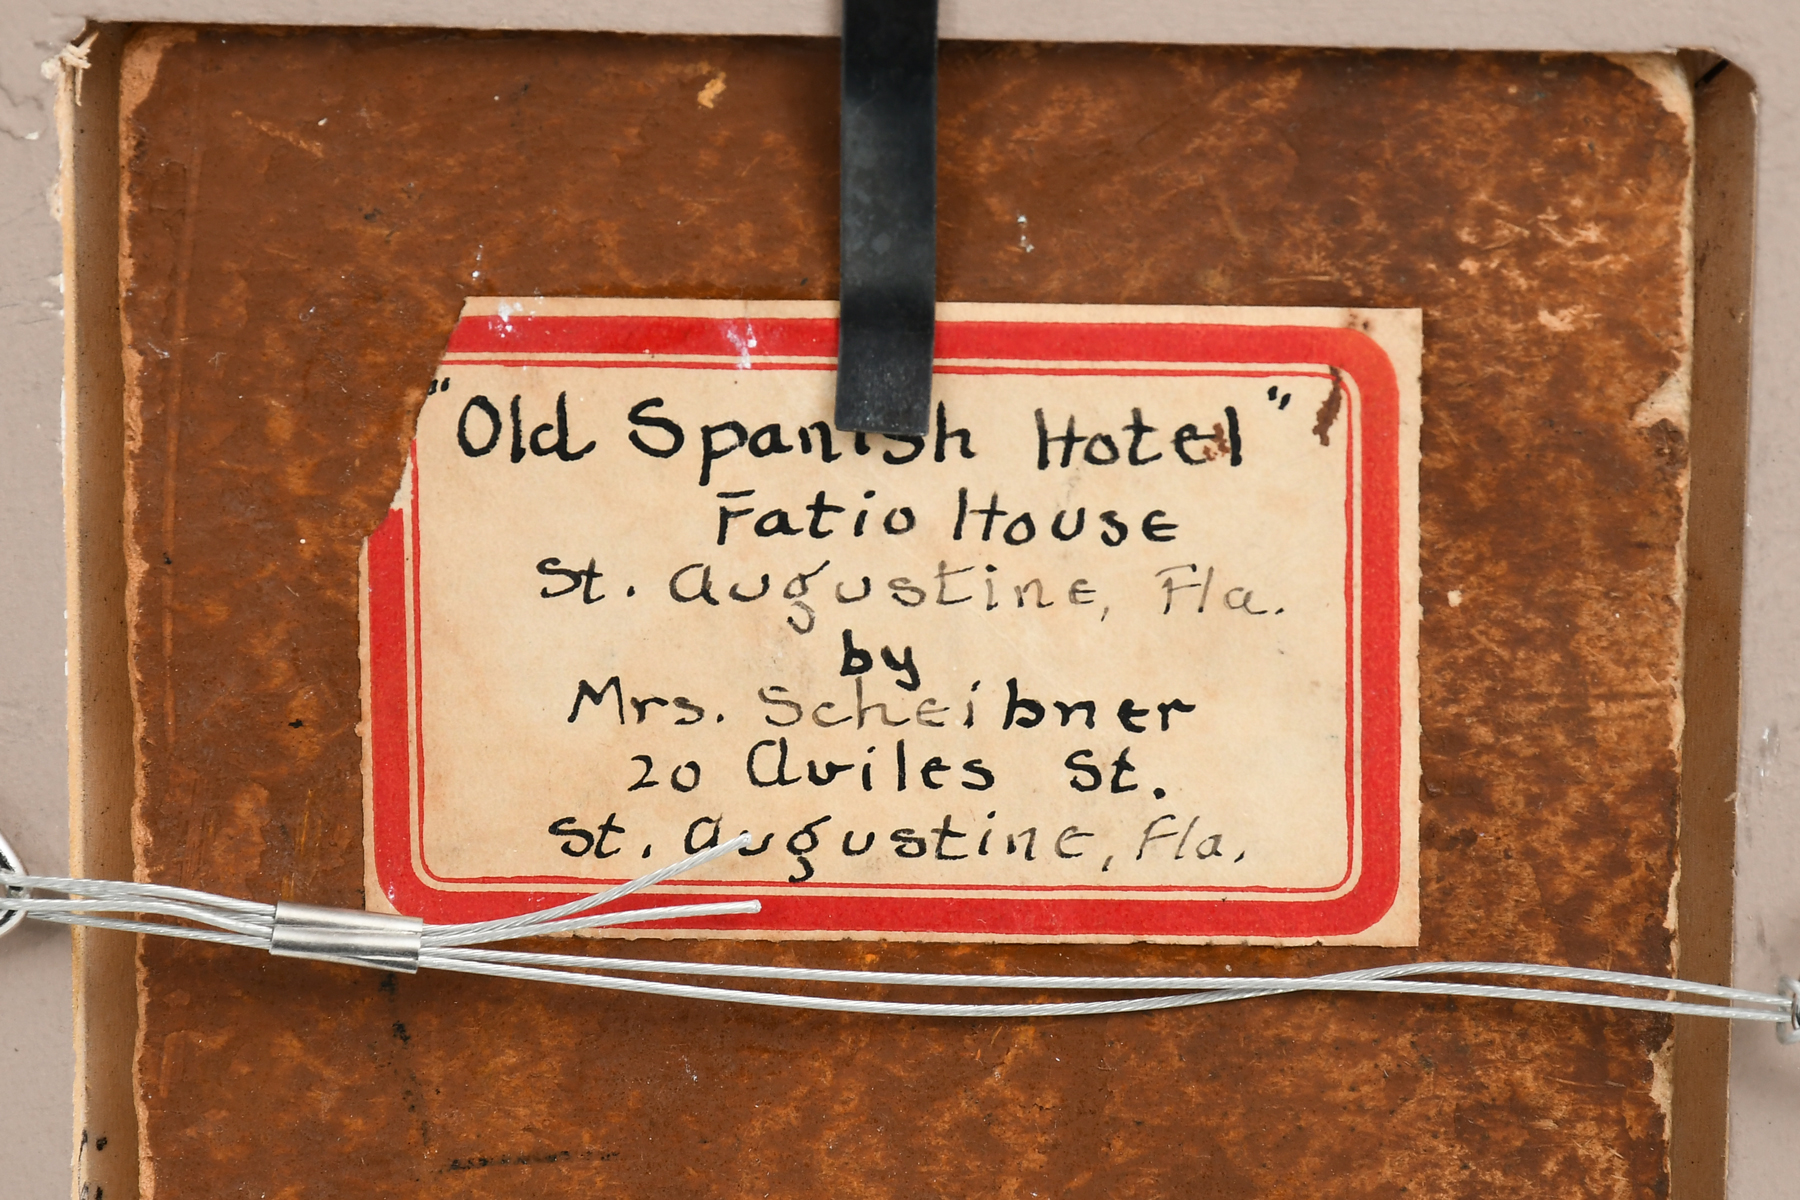 "Old Spanish Hotel"
Fatio House
St. Augustine, Fla.
by
Mrs. Scheibner
20 Aviles St.
St. Augustine, Fla.